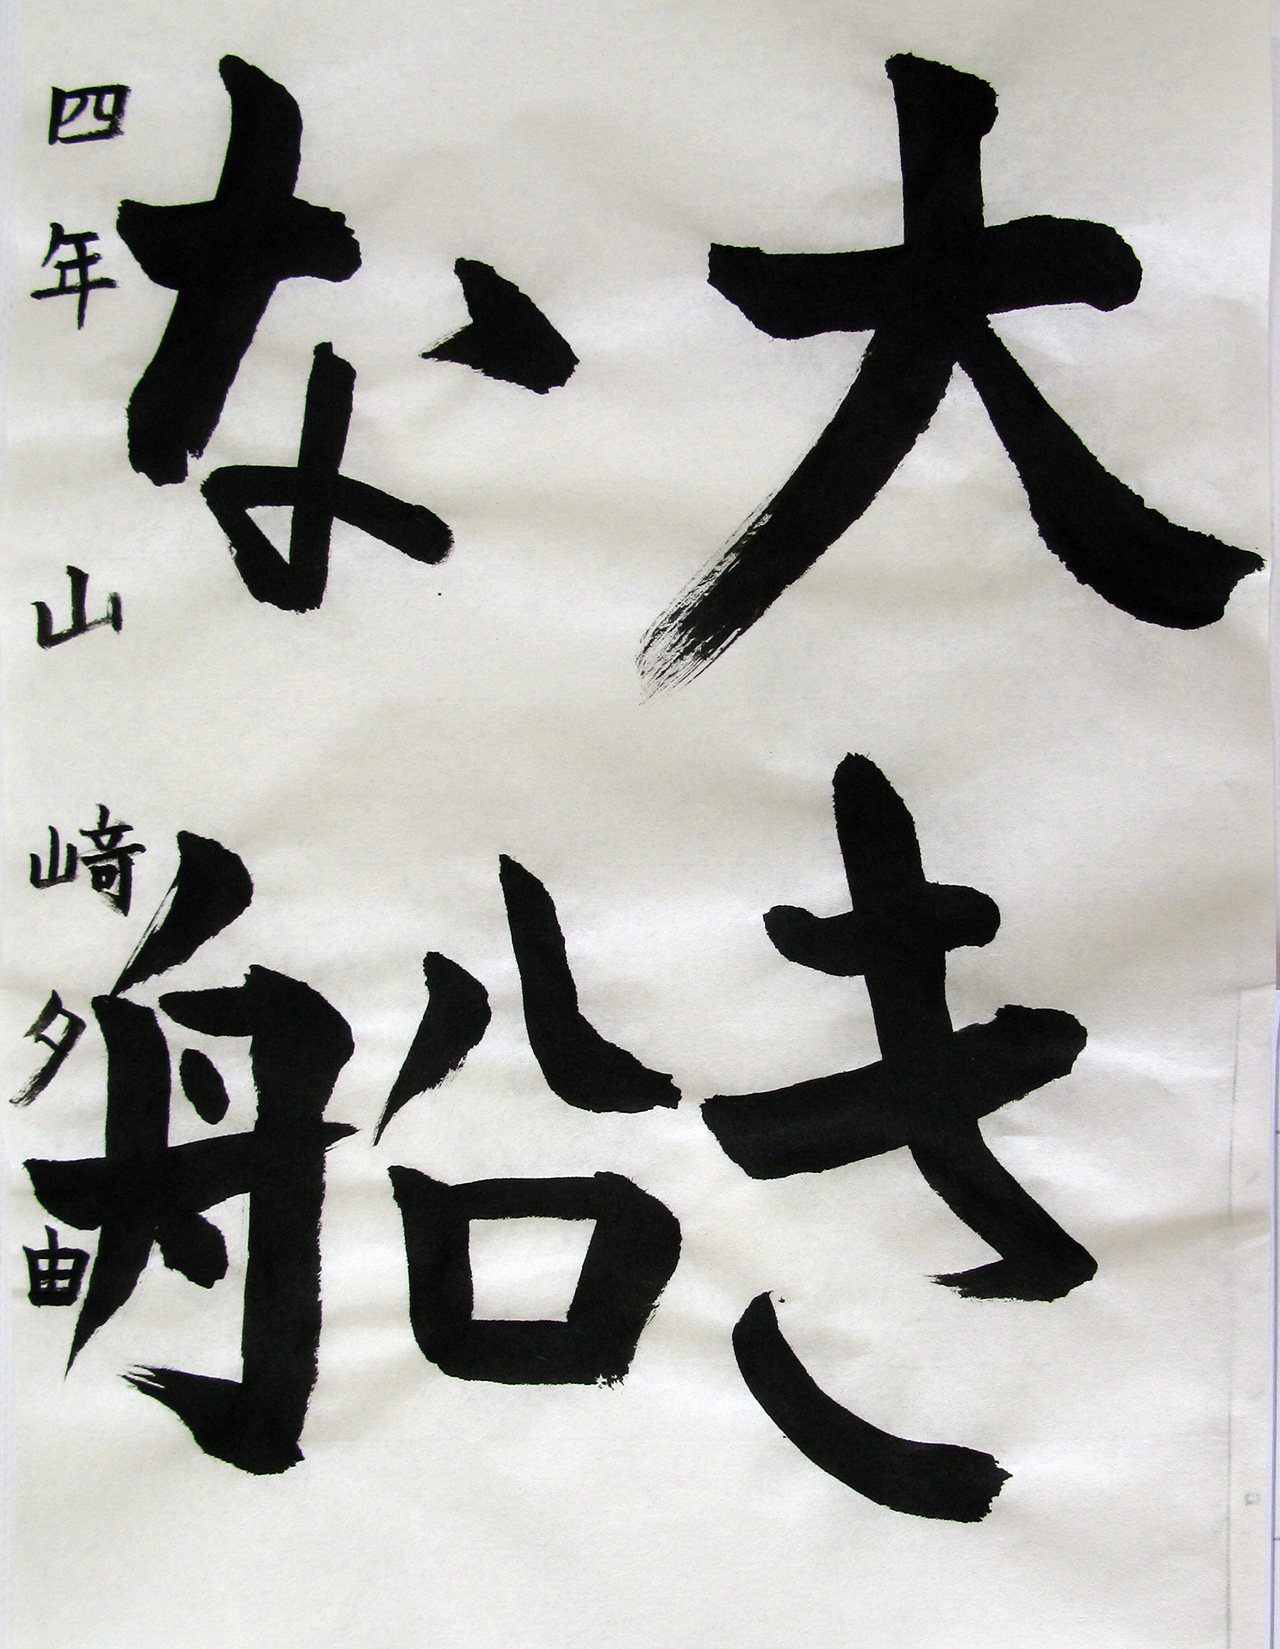 大き
な船
四年 山崎夕由